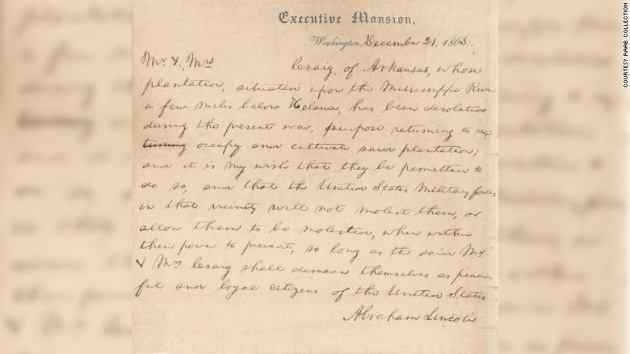 Executive Mansion,
Washington, December 21, 1863.
Mr & Mrs Craig, of Arkansas, whose
plantation, situation upon the Mississippi River
a few miles below Helena, has been desolated
during the present war, purpose returning to re-
turning occupy and cultivate said plantation;
and it is my wish that they be permitted to
do so, and that the United States Military forces
in that vicinity will not molest them, or
allow them to be molested, when within
their power to prevent, so long as the said Mr
& Mrs Craig shall demean themselves as peace-
ful and loyal citizens of the United States
Abraham Lincoln
COURTESY RAAB COLLECTION